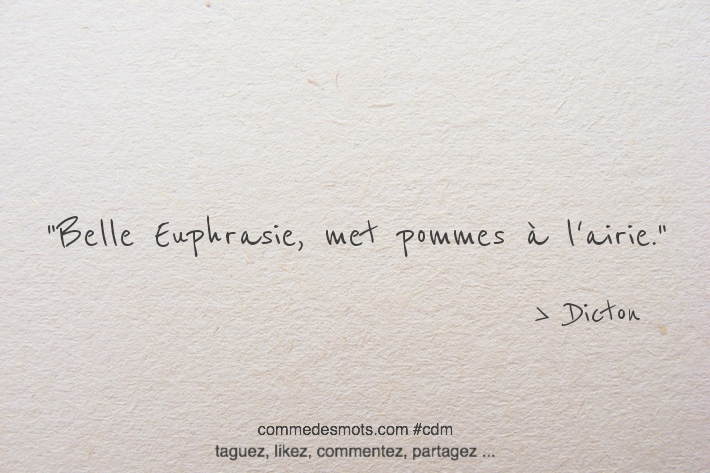 "Belle Euphrasie, met pommes à l'airie."
> Dicton
commedesmots.com #cdm
taguez, likez, commentez, partagez ...